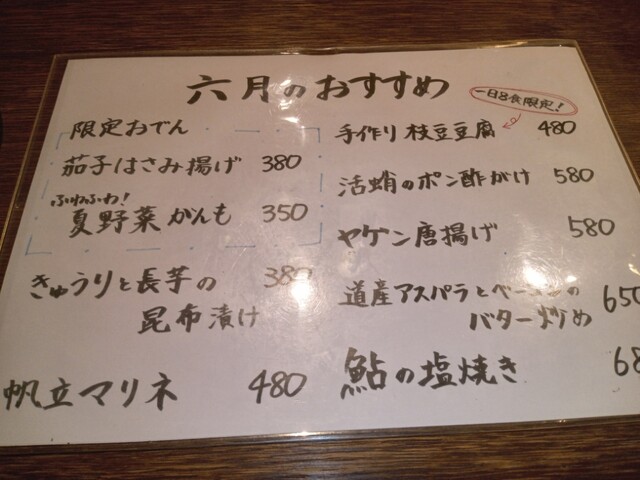 六月のおすすめ
限定おでん
茄子はさみ揚げ 380
ふわふわ!
夏野菜がんも 350
きゅうりと長芋の 380
昆布漬け
帆立マリネ 480
一日8食限定!
手作り枝豆豆腐 480
活蛸のポン酢がけ 580
ヤゲン唐揚げ 580
道産アスパラとベーの 650
バター炒め
鮎の塩焼き 68